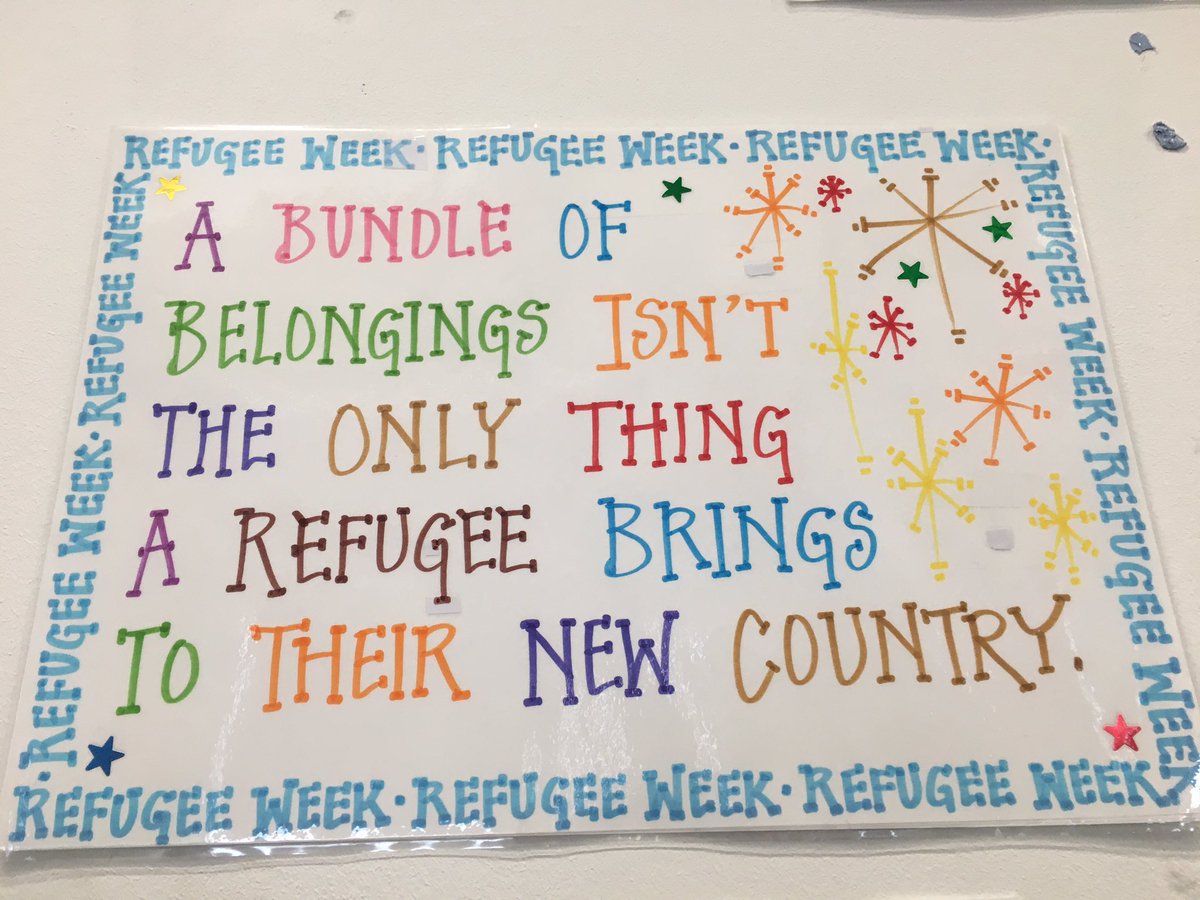 REFUGEE WEEK · REFUGEE WEEK · REFUGEE WEEK ·
A BUNDLE OF
BELONGINGS ISN'T
THE ONLY THING
A REFUGEE BRINGS
TO THEIR NEW COUNTRY.
REFUGEE WEEK · REFUGEE WEEK
REFUGEE WEEK · REFUGEE WEEK · REFUGEE WEEK
· REFUGEE WEEK · REFUGEE WEEK ·